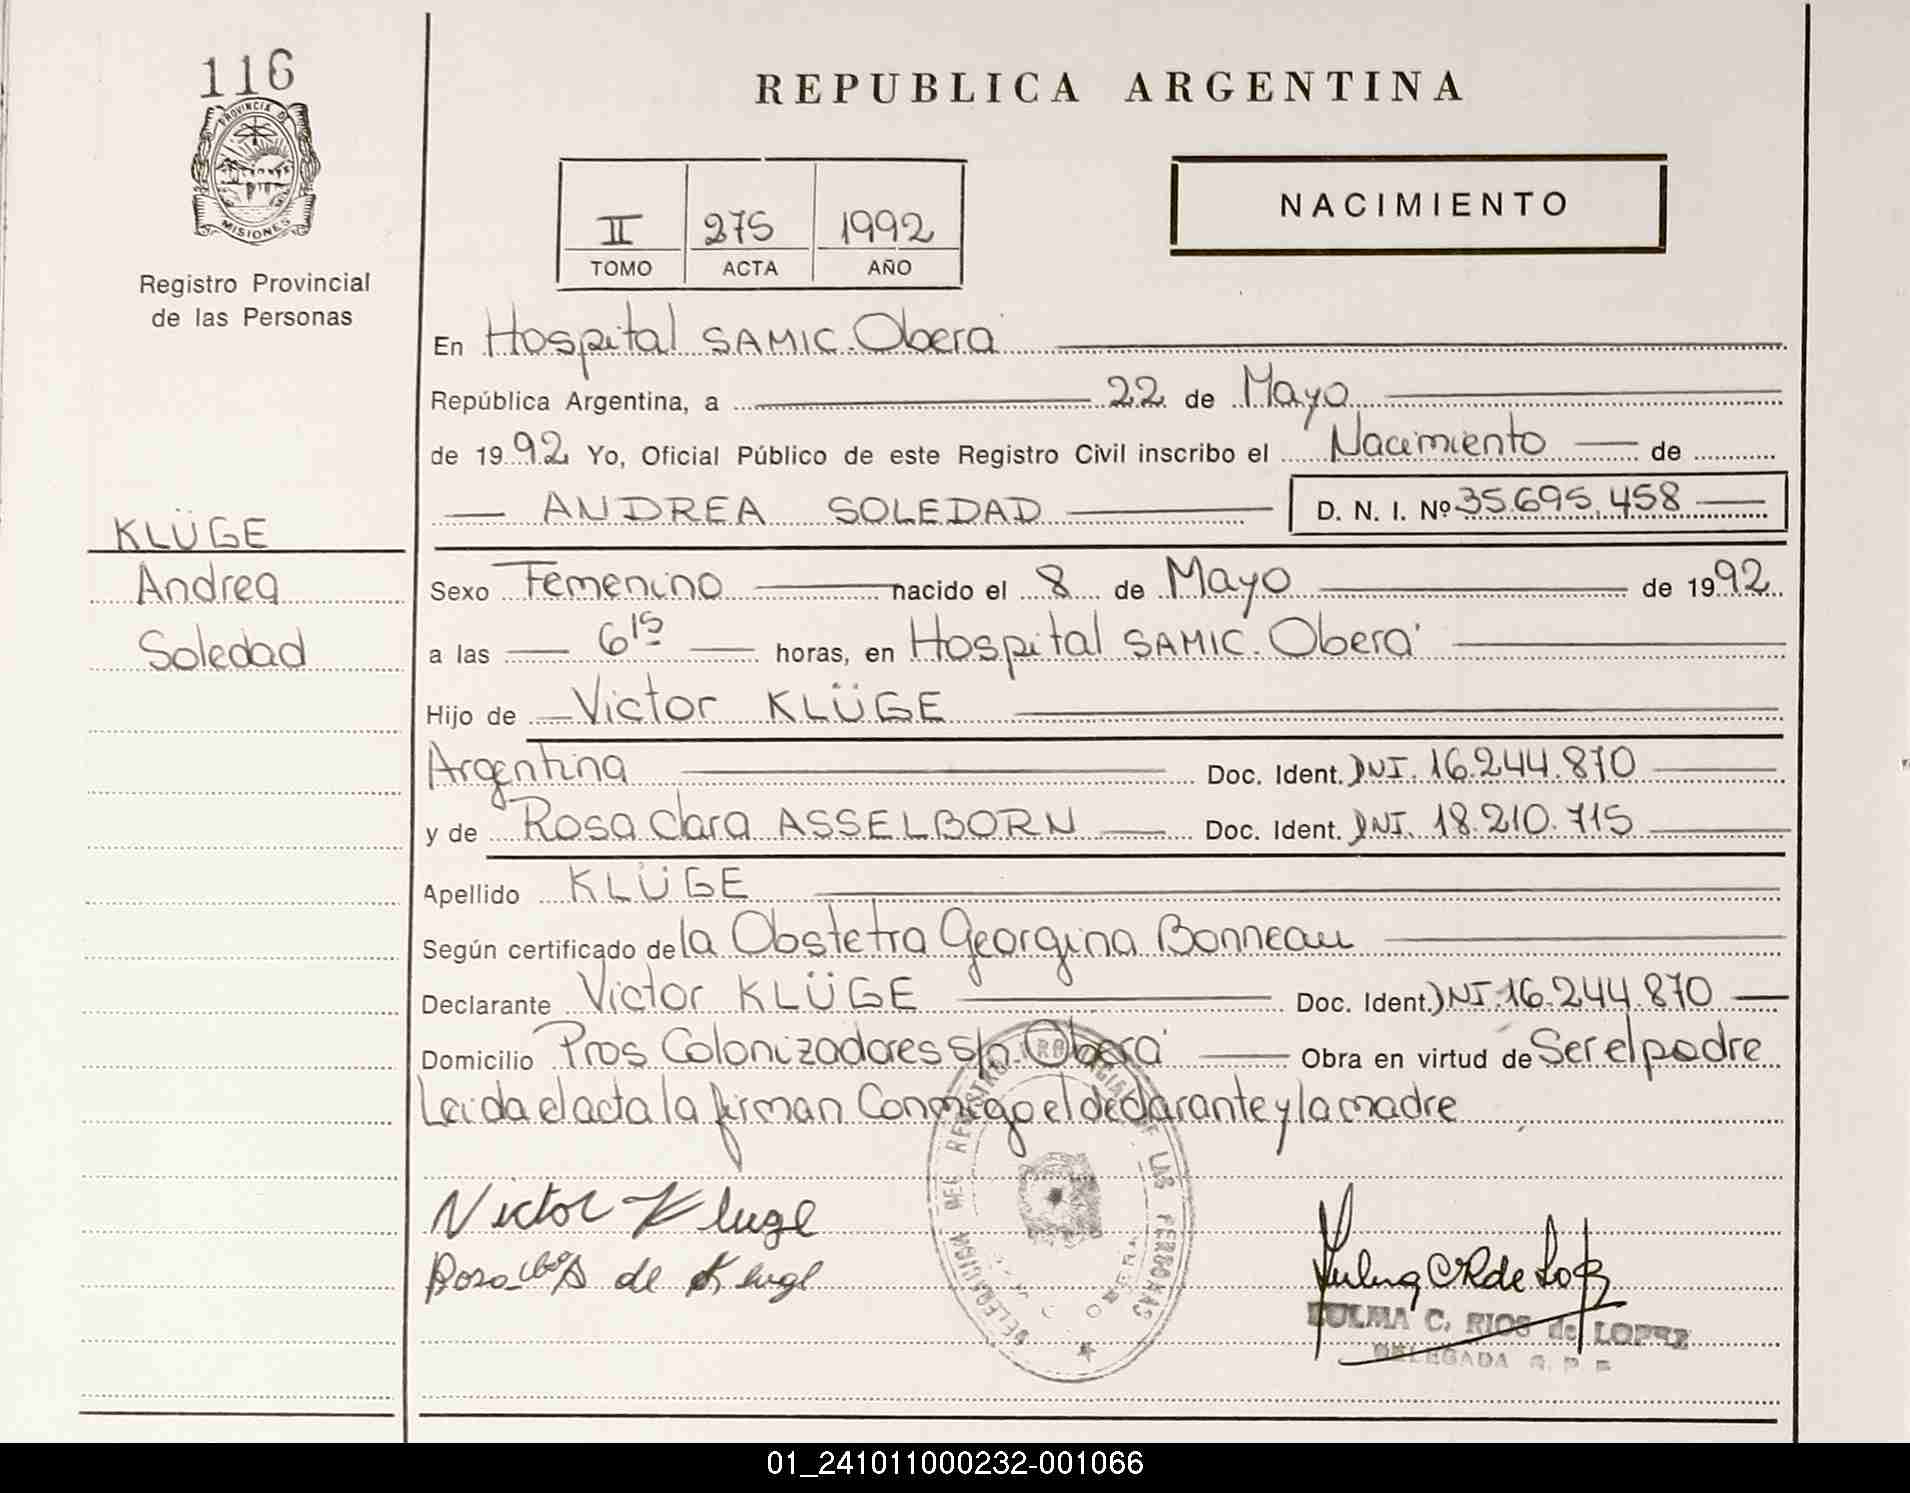 116
PROVINCIA DE
MISIONES
Registro Provincial
de las Personas
REPUBLICA ARGENTINA
II 275 1992
TOMO ACTA AÑO
NACIMIENTO
En Hospital SAMIC. Oberá
República Argentina, a 22 de Mayo
de 1992 Yo, Oficial Público de este Registro Civil inscribo el Nacimiento de
ANDREA SOLEDAD D. N. I. Nº 35.695.458
KLÜGE
Andrea
Soledad
Sexo Femenino nacido el 8 de Mayo de 1992
a las 6 15 horas, en Hospital SAMIC. Oberá
Hijo de Victor KLÜGE
Argentina Doc. Ident. DNI. 16.244.870
y de Rosa Clara ASSELBORN Doc. Ident. DNI. 18.210.715
Apellido KLÜGE
Según certificado de la Obstetra Georgina Bonneau
Declarante Victor KLÜGE Doc. Ident. DNI. 16.244.870
Domicilio Pros Colonizadores s/n. Oberá Obra en virtud de Ser el padre
Leida el acta la firman Conmigo el declarante y la madre
Victor Kluge
Rosa de Kluge
DELEGACION DEL REGISTRO PROVINCIAL DE LAS PERSONAS
OBERA
ZULMA C. RIOS de LOPEZ
DELEGADA
01_241011000232-001066